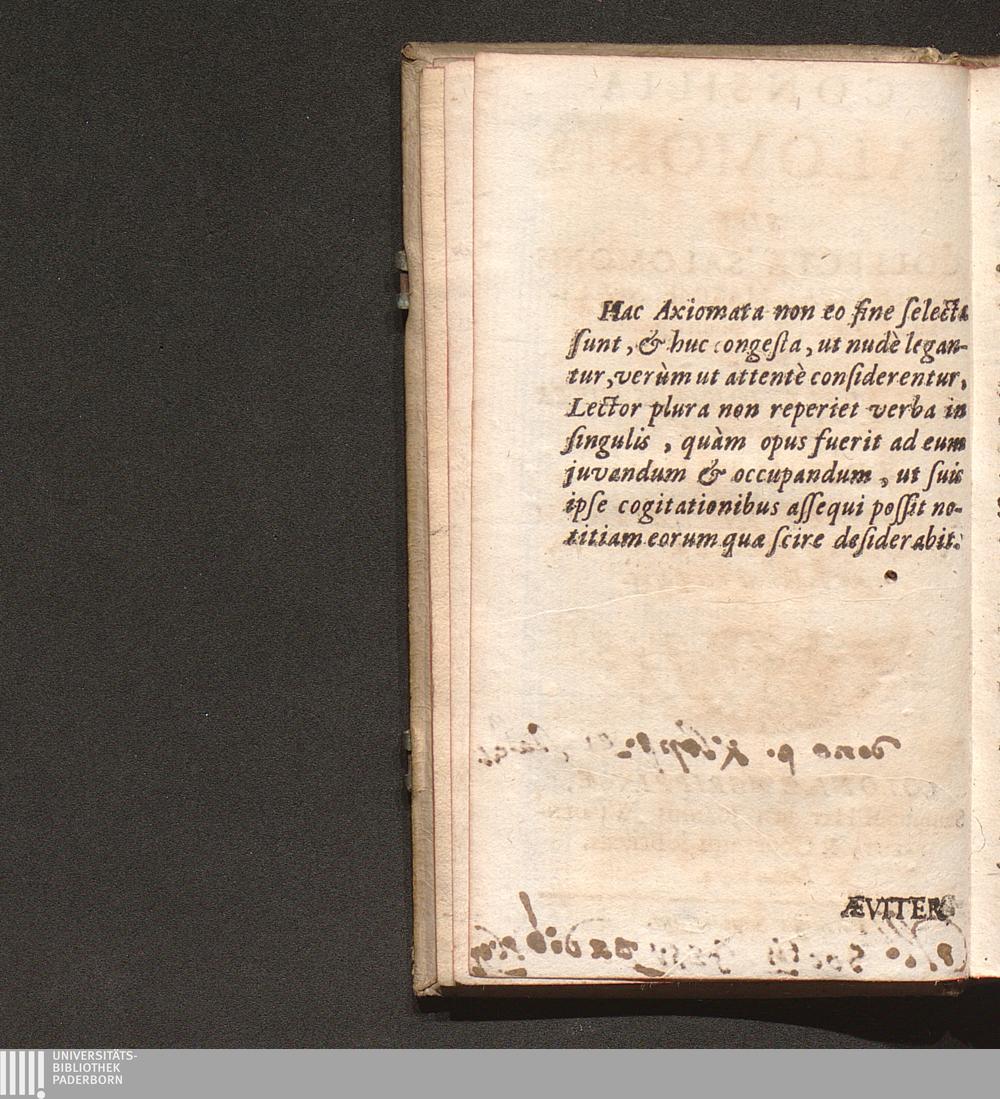 Hac Axiomata non eo fine ſelecta
ſunt, & huc congeſta, ut nudè legan-
tur, verùm ut attentè conſiderentur,
Lector plura non reperiet verba in
ſingulis, quàm opus fuerit ad eum
juvandum & occupandum, ut ſuis
ipſe cogitationibus aſſequi poſſit no-
titiam eorum qua ſcire deſiderabit.
ÆVITER
UNIVERSITÄTS-
BIBLIOTHEK
PADERBORN